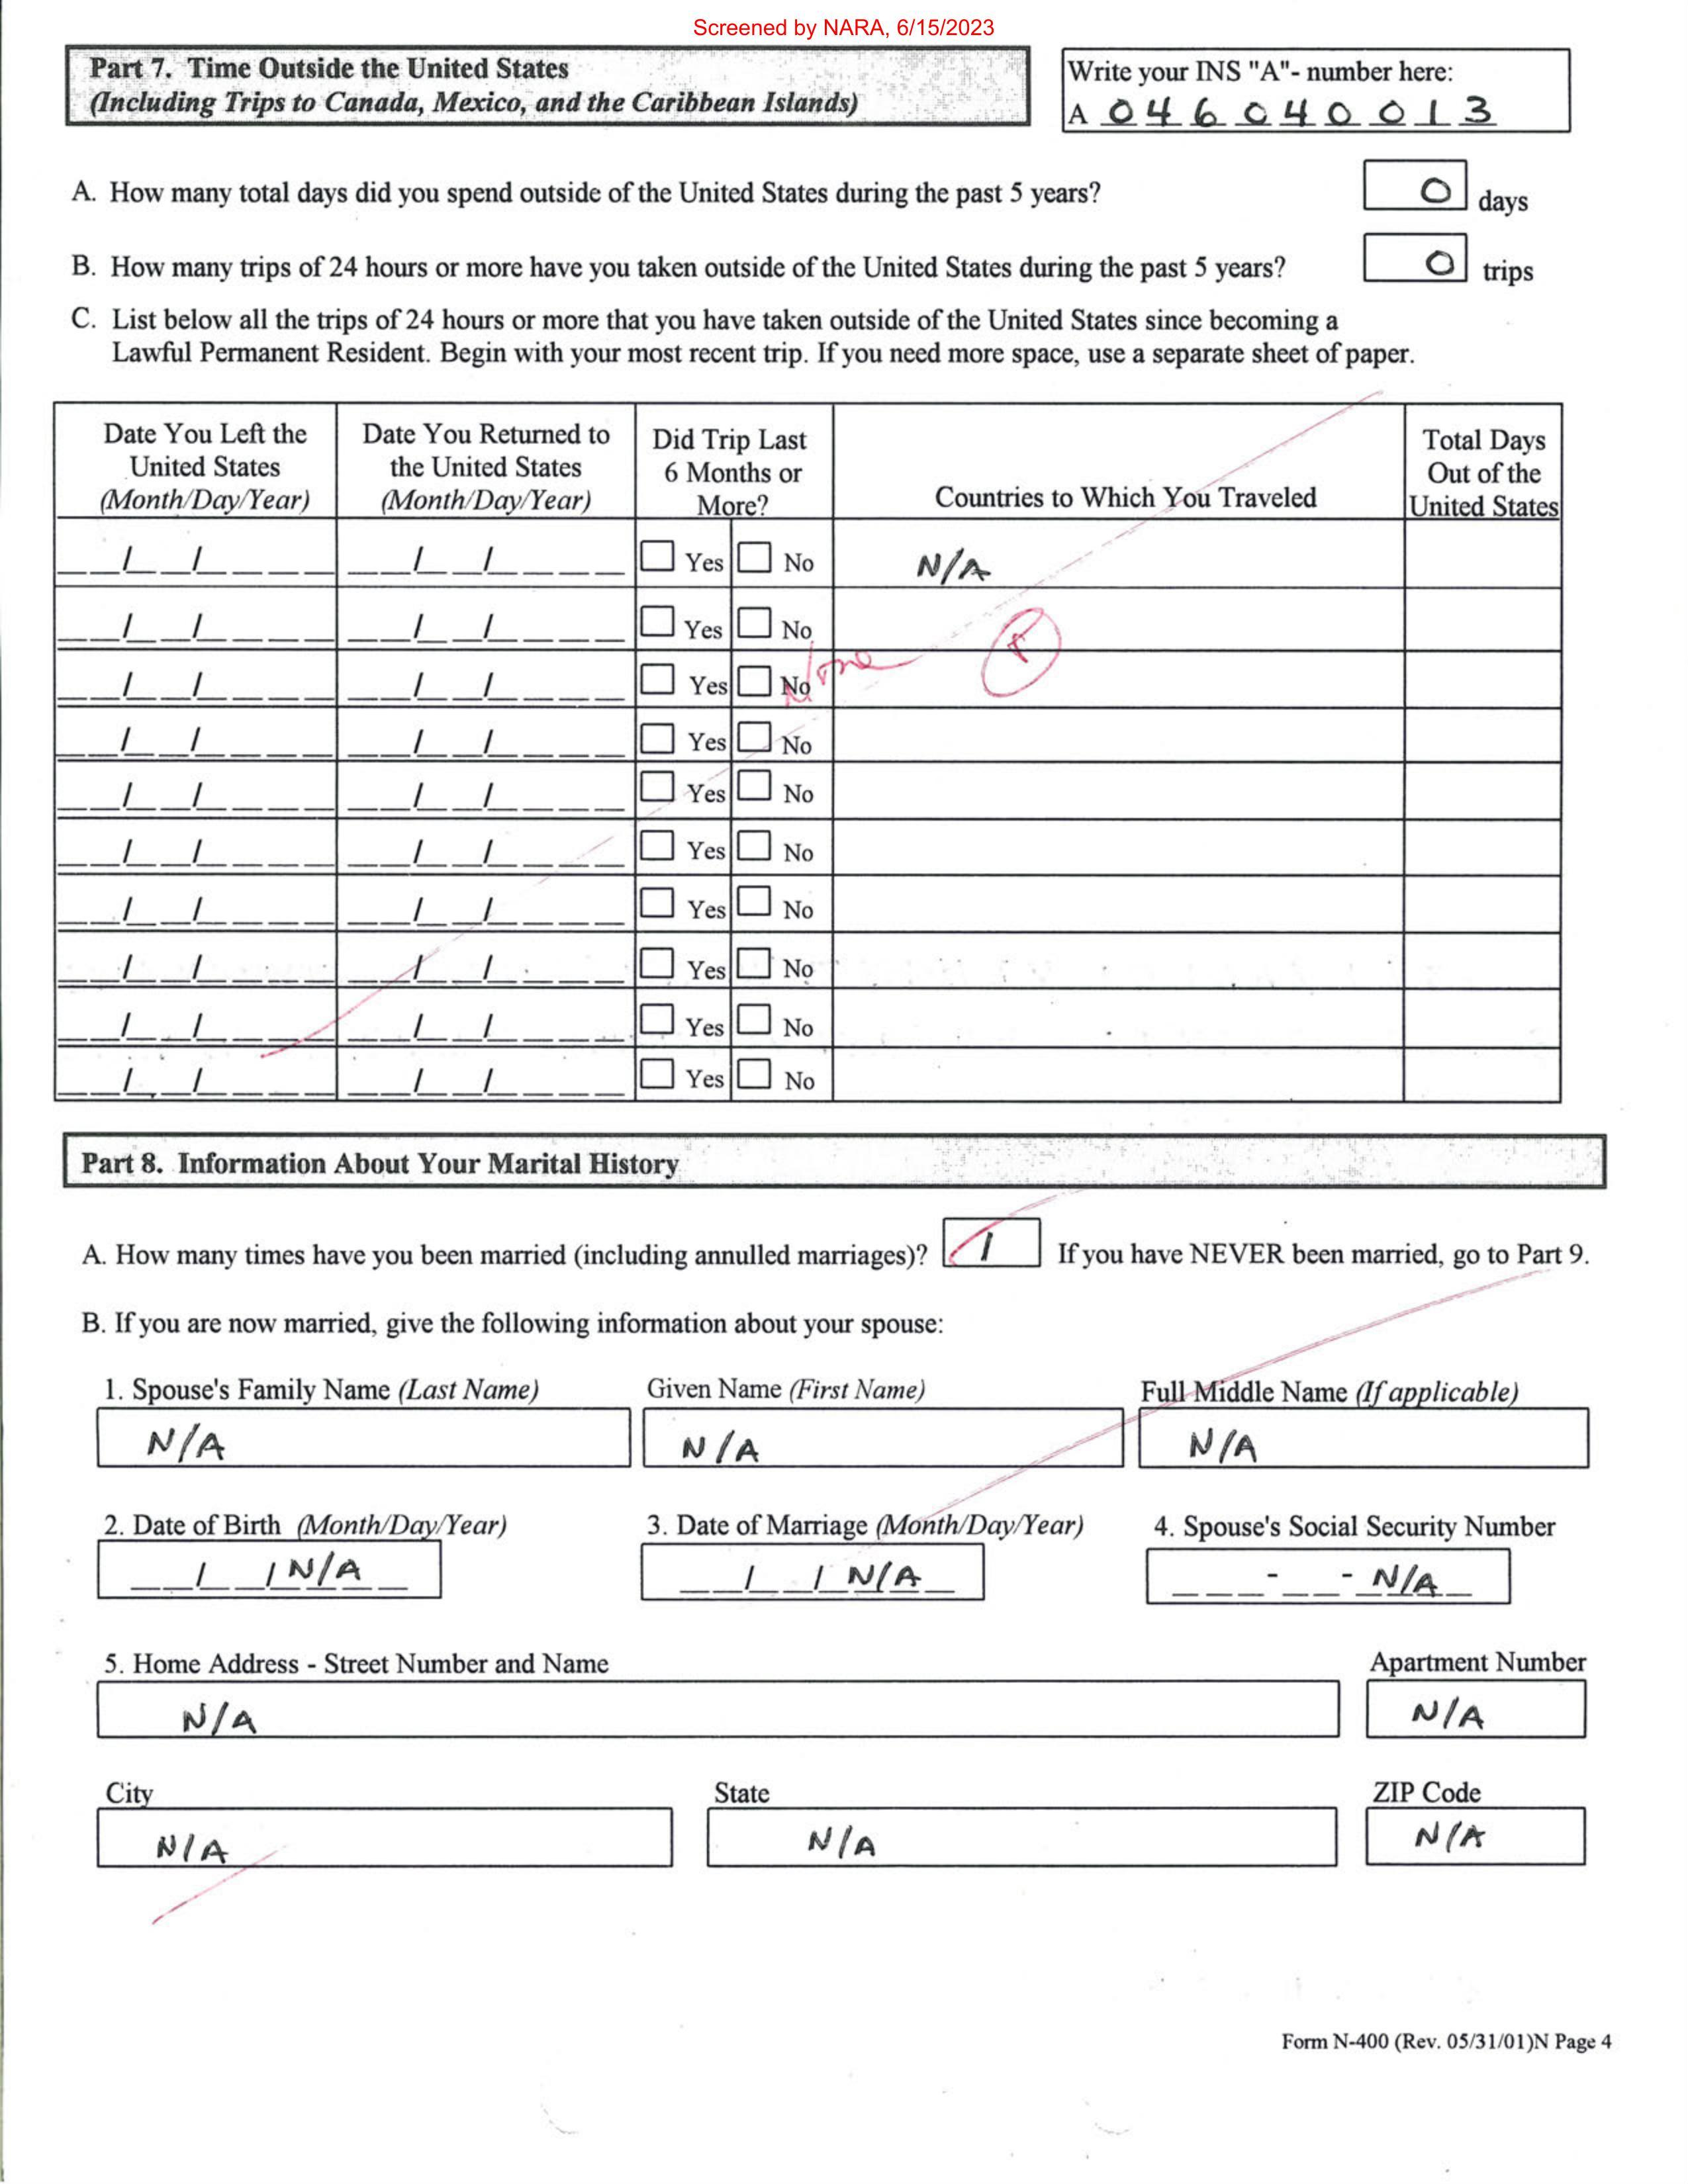 Screened by NARA, 6/15/2023
Part 7. Time Outside the United States
(Including Trips to Canada, Mexico, and the Caribbean Islands)
Write your INS "A"- number here:
A 0 4 6 0 4 0 0 1 3
A. How many total days did you spend outside of the United States during the past 5 years? 0 days
B. How many trips of 24 hours or more have you taken outside of the United States during the past 5 years? 0 trips
C. List below all the trips of 24 hours or more that you have taken outside of the United States since becoming a
Lawful Permanent Resident. Begin with your most recent trip. If you need more space, use a separate sheet of paper.
Date You Left the United States (Month/Day/Year)
Date You Returned to the United States (Month/Day/Year)
Did Trip Last 6 Months or More?
Countries to Which You Traveled
Total Days Out of the United States
/ / / / Yes No N/A
/ / / / Yes No
/ / / / Yes No None
/ / / / Yes No
/ / / / Yes No
/ / / / Yes No
/ / / / Yes No
/ / / / Yes No
/ / / / Yes No
/ / / / Yes No
Part 8. Information About Your Marital History
A. How many times have you been married (including annulled marriages)? 1 If you have NEVER been married, go to Part 9.
B. If you are now married, give the following information about your spouse:
1. Spouse's Family Name (Last Name) Given Name (First Name) Full Middle Name (If applicable)
N/A N/A N/A
2. Date of Birth (Month/Day/Year) 3. Date of Marriage (Month/Day/Year) 4. Spouse's Social Security Number
/ / N/A / / N/A - - N/A
5. Home Address - Street Number and Name Apartment Number
N/A N/A
City State ZIP Code
N/A N/A N/A
Form N-400 (Rev. 05/31/01)N Page 4